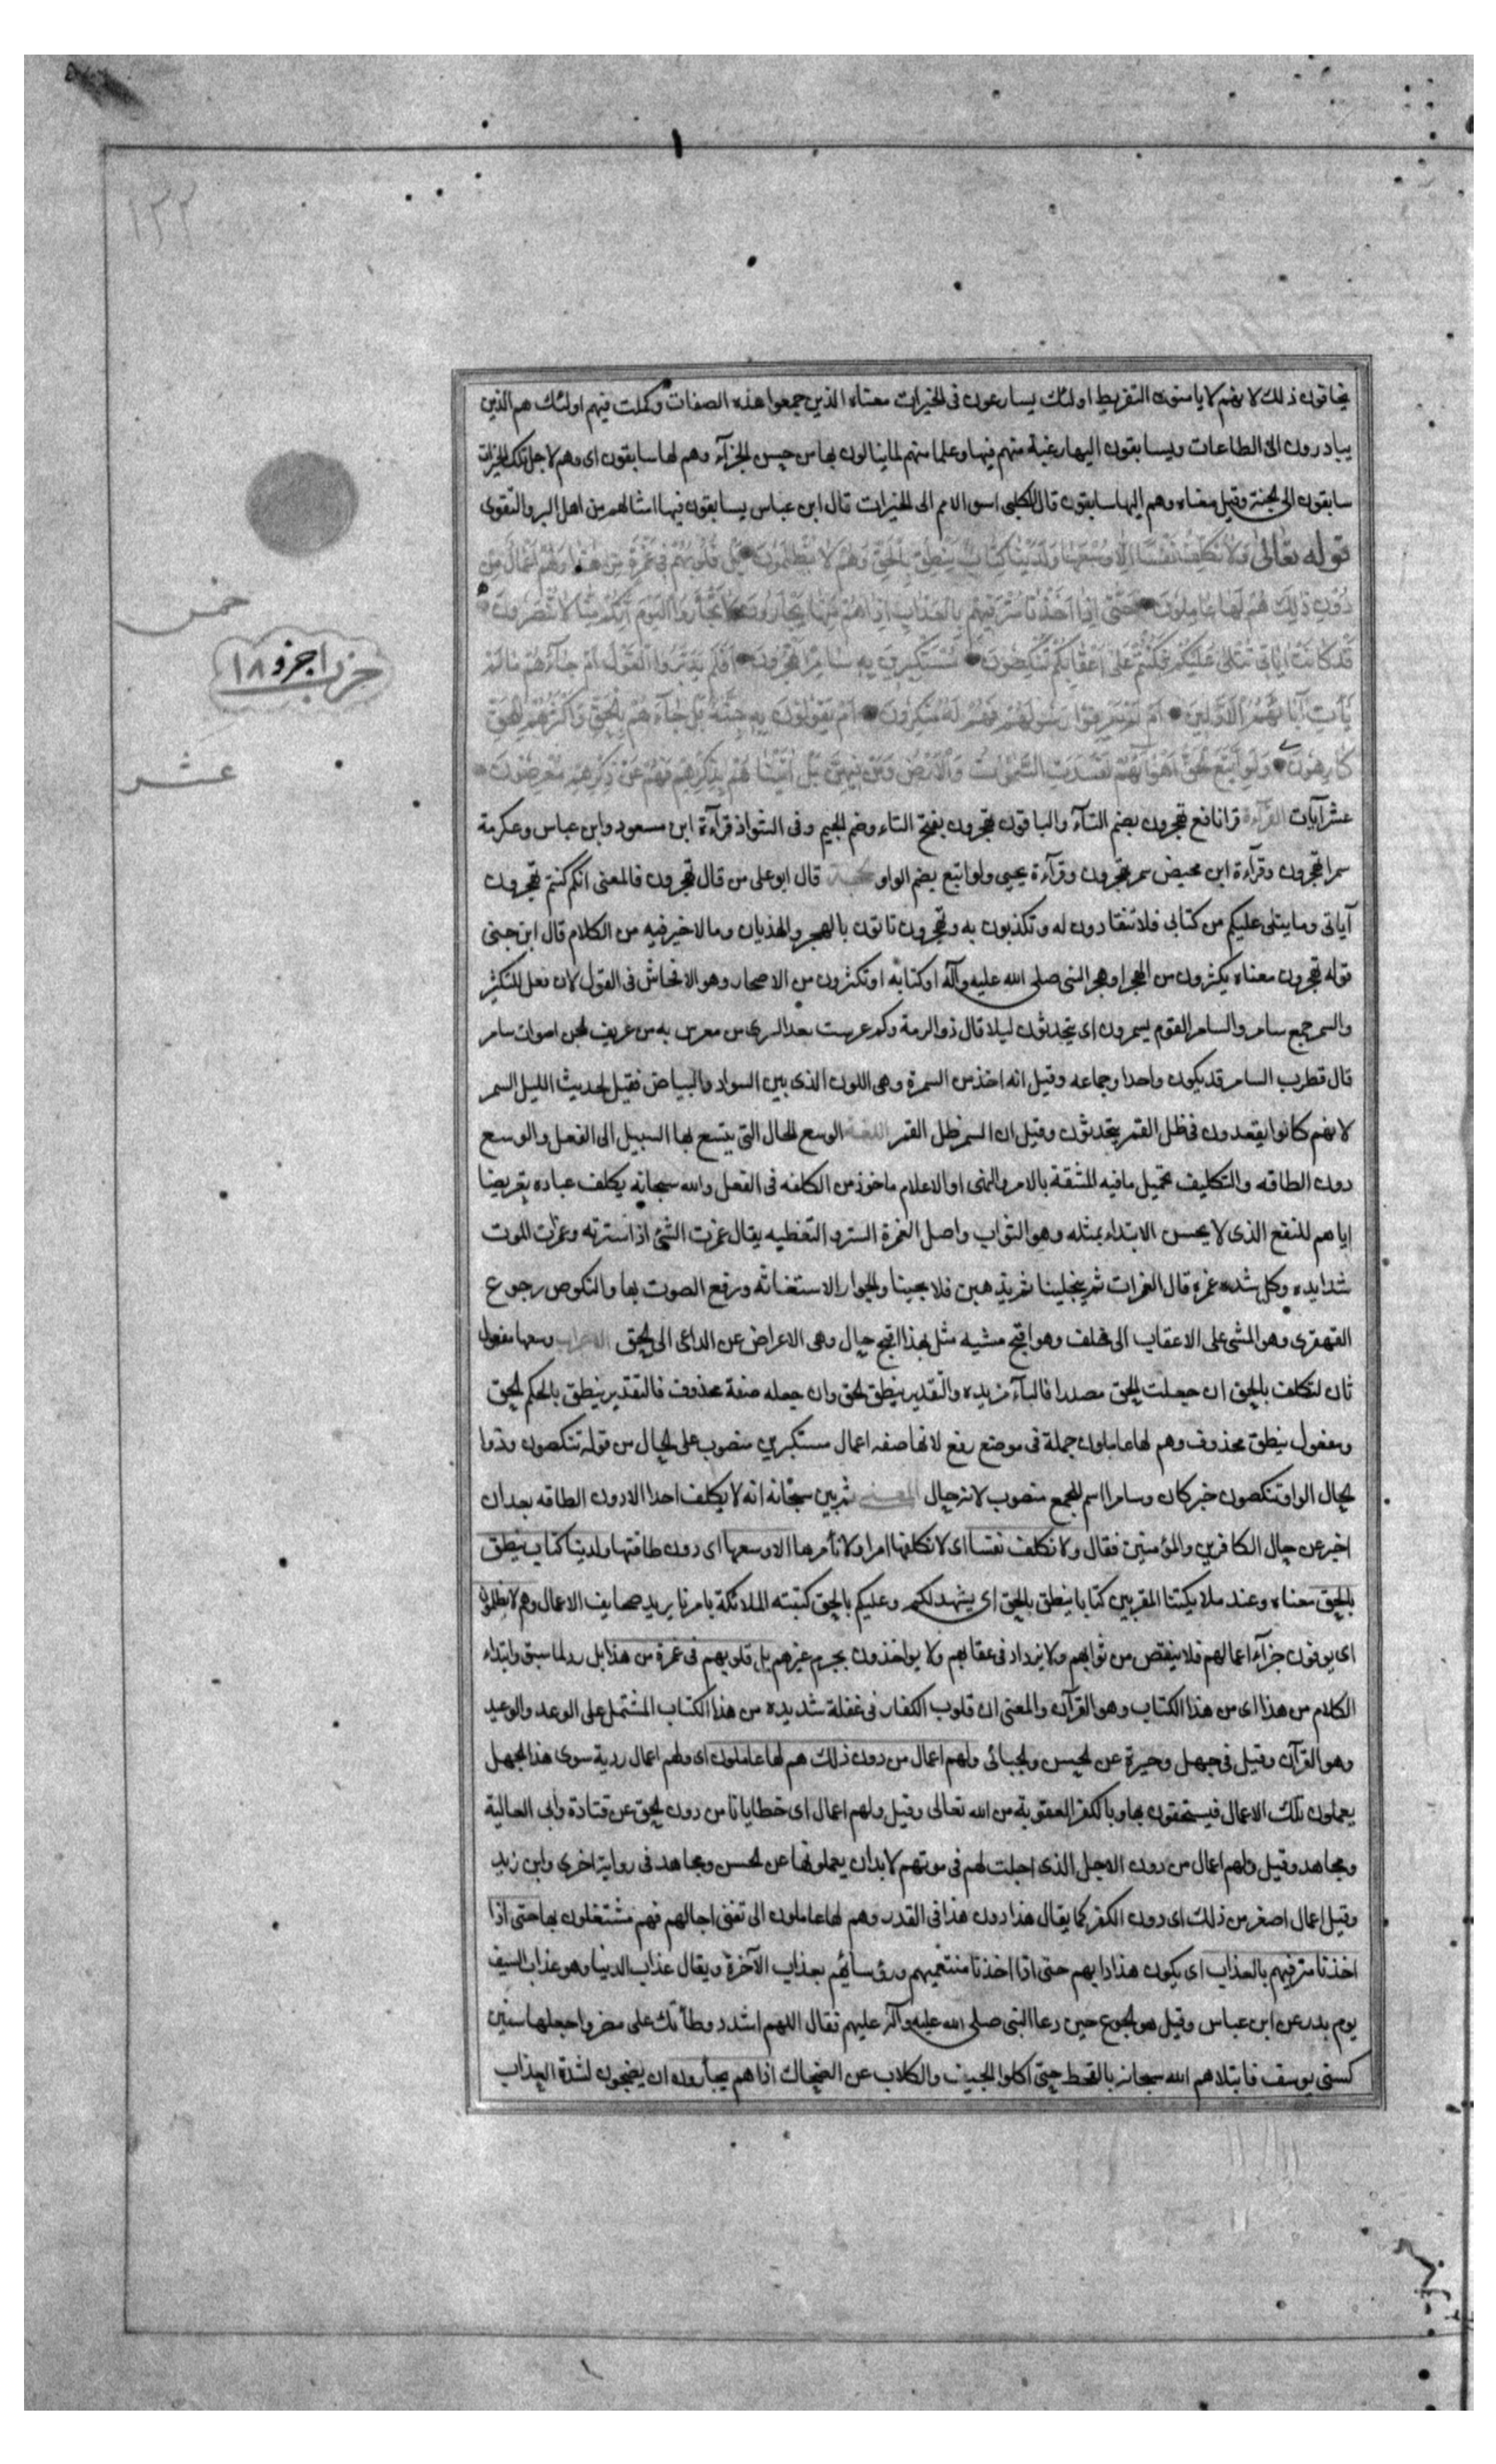 ١٣٢
يخافون ذلك لانهم لا يامنون التفريط اولئك يسارعون فى الخيرات معناه الذين جمعوا هذه الصفات وكملت فيهم اولئك هم الذين
يبادرون الى الطاعات ويسابقون اليها رغبة منهم فيها وعلما منهم لما ينالون بها من حسن الجزآء وهم لها سابقون اى وهم لاجل تلك الخيرات
سابقون الى الجنة وقيل معناه وهم اليها سابقون قال الكلبى اسبق الامم الى الخيرات قال ابن عباس يسابقون فيها امثالهم من اهل البر والتقوى
قوله تعالى وَلَا نُكَلِّفُ نَفْسًا اِلَّا وُسْعَهَا وَلَدَيْنَا كِتَابٌ يَنْطِقُ بِالْحَقِّ وَهُمْ لَا يُظْلَمُونَ بَلْ قُلُوبُهُمْ فِى غَمْرَةٍ مِنْ هٰذَا وَلَهُمْ اَعْمَالٌ مِنْ
دُونِ ذٰلِكَ هُمْ لَهَا عَامِلُونَ حَتّٰى اِذَا اَخَذْنَا مُتْرَفِيهِمْ بِالْعَذَابِ اِذَا هُمْ يَجْأَرُونَ لَا تَجْأَرُوا الْيَوْمَ اِنَّكُمْ مِنَّا لَا تُنْصَرُونَ
قَدْ كَانَتْ آيَاتِى تُتْلٰى عَلَيْكُمْ فَكُنْتُمْ عَلٰى اَعْقَابِكُمْ تَنْكِصُونَ مُسْتَكْبِرِينَ بِهِ سَامِرًا تَهْجُرُونَ اَفَلَمْ يَدَّبَّرُوا الْقَوْلَ اَمْ جَآءَهُمْ مَا لَمْ
يَأْتِ آبَآءَهُمُ الْاَوَّلِينَ اَمْ لَمْ يَعْرِفُوا رَسُولَهُمْ فَهُمْ لَهُ مُنْكِرُونَ اَمْ يَقُولُونَ بِهِ جِنَّةٌ بَلْ جَآءَهُمْ بِالْحَقِّ وَاَكْثَرُهُمْ لِلْحَقِّ
كَارِهُونَ وَلَوِ اتَّبَعَ الْحَقُّ اَهْوَآءَهُمْ لَفَسَدَتِ السَّمٰوَاتُ وَالْاَرْضُ وَمَنْ فِيهِنَّ بَلْ اَتَيْنَاهُمْ بِذِكْرِهِمْ فَهُمْ عَنْ ذِكْرِهِمْ مُعْرِضُونَ
عشر آيات القرآءة قرا نافع تهجرون بضم التآء والباقون تهجرون بفتح التاء وضم الجيم وفى الشواذ قرآءة ابن مسعود وابن عباس وعكرمة
سمرا تهجرون وقرآءة ابن محيض سمر تهجرون وقرآءة يحيى ولو اتبع بضم الواو الحجة قال ابو على من قال تهجرون فالمعنى انكم كنتم تهجرون
آياتى وما يتلى عليكم من كتابى فلا تنقادون له وتكذبون به وتهجرون تاتون بالهجر والهذيان وما لا خير فيه من الكلام قال ابن جنى
قوله تهجرون معناه يكثرون من الهجر او هجر النبى صلى الله عليه وآله او كتابه او تكثرون من الاهجار وهو الافحاش فى القول لان فعل للتكثر
والسمر جمع سامر والسامر القوم يسمرون اى يتحدثون ليلا قال ذو الرمة وكم عرست بعد السرى من معرس به من عزيف الجن اصوات سامر
قال قطرب السامر قد يكون واحدا وجماعه وقيل انه اخذ من السمرة وهى اللون الذى بين السواد والبياض فقيل لحديث الليل السمر
لانهم كانوا يقعدون فى ظل القمر يتحدثون وقيل ان السمر ظل القمر اللغة الوسع الحال التى يتسع بها السبيل الى الفعل والوسع
دون الطاقه والتكليف تحميل ما فيه المشقة بالامر والنهى او الاعلام ماخوذ من الكلفه فى الفعل والله سبحانه يكلف عباده تعريضا
اياهم للنفع الذى لا يحسن الابتداء بمثله وهو الثواب واصل الغمرة الستر و التغطيه يقال غمرت الشئ اذا سترته وغمرات الموت
شدايده وكل شده غمره قال الغمرات ثم ينجلينا ثم يذهبن فلا يجينا والجوار الاستغاثه ورفع الصوت بها والنكوص رجوع
القهقرى وهو المشى على الاعقاب الى خلف وهو اقبح مشيه مثل بهذا اقبح حال وهى الاعراض عن الداعى الى الحق الاعراب وسعها مفعول
ثان لنكلف بالحق ان جعلت الحق مصدرا فالبآء مزيده والتقدير ينطق الحق وان جعله صفة محذوف فالتقدير ينطق بالحكم الحق
ومفعول ينطق محذوف وهم لها عاملون جملة فى موضع رفع لانها صفه اعمال مستكبرين منصوب على الحال من قوله تنكصون وذوا
الحال الواو تنكصون خبر كان وسامرا اسم للجمع منصوب لانه حال المعنى ثم بين سبحانه انه لا يكلف احدا الا دون الطاقه بعد ان
اخبر عن حال الكافرين والمؤمنين فقال ولا نكلف نفسا اى لا نكلفها امرا ولا نأمرها الا وسعها اى دون طاقتها ولدينا كتاب ينطق
بالحق معناه وعند ملائكتنا المقربين كتابا ينطق بالحق اى يشهد لكم وعليكم بالحق كتبته الملائكة بامرنا يريد صحايف الاعمال وهم لا يظلمون
اى يوفون جزآء اعمالهم فلا ينقص من ثوابهم ولا يزداد فى عقابهم ولا يواخذون بجرم غيرهم بل قلوبهم فى غمرة من هذا بل رد لما سبق وابتداء
الكلام من هذا اى من هذا الكتاب وهو القرآن والمعنى ان قلوب الكفار فى غفلة شديده من هذا الكتاب المشتمل على الوعد والوعيد
وهو القرآن وقيل فى جهل وحيرة عن الحسن والجبائى ولهم اعمال من دون ذلك هم لها عاملون اى ولهم اعمال ردية سوى هذا الجهل
يعملون تلك الاعمال فيستحقون بها وبالكفر العقوبة من الله تعالى وقيل ولهم اعمال اى خطايا من دون الحق عن قتادة وابى العالية
ومجاهد وقيل ولهم اعمال من دون الاجل الذى اجلت لهم فى موتهم لا بد ان يعملوها عن الحسن ومجاهد فى رواية اخرى وابن زيد
وقيل اعمال اصغر من ذلك اى دون الكفر كما يقال هذا دون هذا فى القدر وهم لها عاملون الى تفنى اجالهم فهم مشتغلون بها حتى اذا
اخذنا مترفيهم بالعذاب اى يكون هذا دابهم حتى اذا اخذنا متنعميهم ورؤسائهم بعذاب الآخرة ويقال عذاب الدنيا وهو عذاب السيف
يوم بدر عن ابن عباس وقيل هو الجوع حين دعا النبى صلى الله عليه وآله عليهم فقال اللهم اشدد وطأتك على مضر واجعلها سنين
كسنى يوسف فابتلاهم الله سبحانه بالقحط حتى اكلوا الجيف والكلاب عن الضحاك اذا هم يجأرون ان يضجون لشدة العذاب
خمس
حزب ١ جزو ١٨
عشر